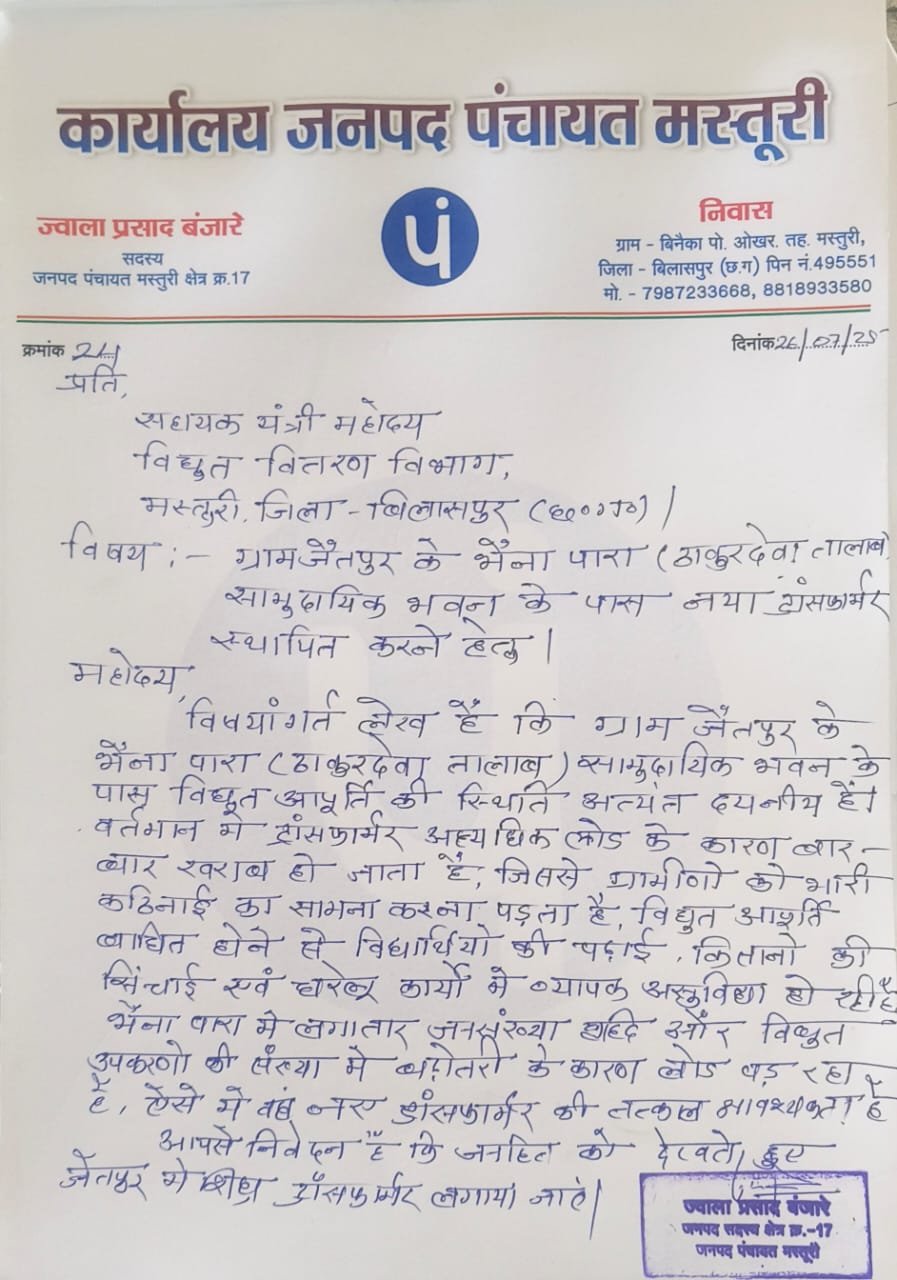 कार्यालय जनपद पंचायत मस्तूरी
ज्वाला प्रसाद बंजारे
सदस्य
जनपद पंचायत मस्तुरी क्षेत्र क्र.17
पं
निवास
ग्राम - बिनैका पो. ओखर. तह. मस्तुरी,
जिला - बिलासपुर (छ.ग) पिन नं.495551
मो. - 7987233668, 8818933580
क्रमांक 24
दिनांक 26/07/25
प्रति,
सहायक यंत्री महोदय
विद्युत वितरण विभाग,
मस्तुरी, जिला - बिलासपुर (छ०ग०)।
विषय :- ग्राम जैतपुर के भैना पारा (ठाकुरदेवा तालाब)
सामुदायिक भवन के पास नया ट्रांसफार्मर
स्थापित करने हेतु।
महोदय,
विषयांगर्त लेख है कि ग्राम जैतपुर के
भैना पारा (ठाकुरदेवा तालाब) सामुदायिक भवन के
पास विद्युत आपूर्ति की स्थिति अत्यंत दयनीय हैं।
वर्तमान मे ट्रांसफार्मर अत्यधिक लोड के कारण बार-
बार खराब हो जाता है, जिससे ग्रामीणो को भारी
कठिनाई का सामना करना पड़ता है, विद्युत आपूर्ति
बाधित होने से विद्यार्थियो की पढ़ाई, किसानो की
सिंचाई एवं घरेलू कार्यो मे व्यापक असुविधा हो रही है
भैना पारा मे लगातार जनसंख्या वृद्दि और विद्युत
उपकरणो की संख्या मे बढ़ोतरी के कारण लोड बड़ रहा
है, ऐसे मे वहां नए ट्रांसफार्मर की तत्काल आवश्यकता है
आपसे निवेदन है कि जनहित को देखते हुए
जैतपुर मे शिघ्र ट्रांसफार्मर लगाया जाए।
ज्वाला प्रसाद बंजारे
जनपद सदस्य क्षेत्र क्र.-17
जनपद पंचायत मस्तुरी